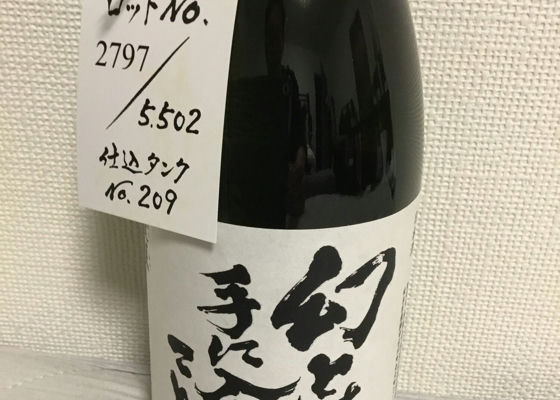 ロットNo.
2797
/
5.502
仕込タンク
No. 209
幻と
手に